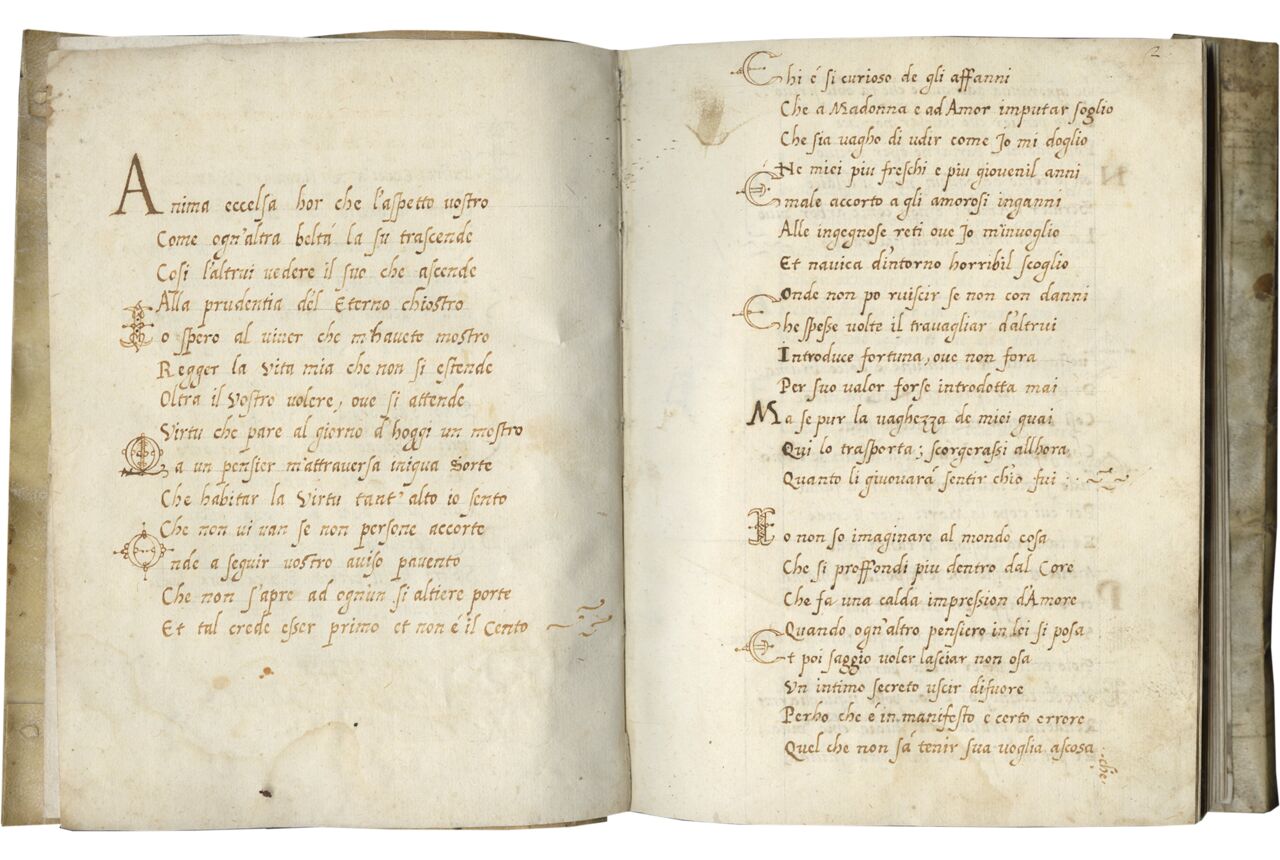 Anima eccelsa hor che l'aspetto vostro
Come ogn'altra beltá la su trascende
Cosi l'altrui vedere il suo che ascende
Alla prudentia del Eterno chiostro
Io spero al viver che m'haveto mostro
Regger la vita mia che non si estende
Oltra il vostro volere, ove si attende
Virtu che pare al giorno d'hoggi un mostro
Qa un pensier m'attraversa iniqua Sorte
Che habitar la Virtu tant' alto io sento
Che non vi van se non persone accorte
Onde a seguir vostro aviso pavento
Che non s'apre ad ognun si altiere porte
Et tal crede esser primo et non é il Cento
2
Chi é si curioso de gli affanni
Che a Madonna e ad Amor imputar soglio
Che sia vagho di udir come Jo mi doglio
Ne miei piu freschi e piu giovenil anni
E male accorto a gli amorosi inganni
Alle ingegnose reti ove Jo m'invoglio
Et navica d'intorno horribil scoglio
Onde non po ruiscir se non con danni
Che spesse volte il travagliar d'altrui
Introduce fortuna, ove non fora
Per suo valor forse introdotta mai
Ma se pur la vaghezza de miei guai
Qui lo trasporta; scorgerassi allhora
Quanto li giuovará sentir ch'io fui
Io non so imaginare al mondo cosa
Che si proffondi piu dentro dal Core
Che fa una calda impression d'Amore
Quando ogn'altro pensiero in lei si posa
Et poi saggio voler lasciar non osa
Un intimo secreto uscir difuore
Perho che é in manifesto e certo errore
Quel che non sá tenir sua voglia ascosa
che